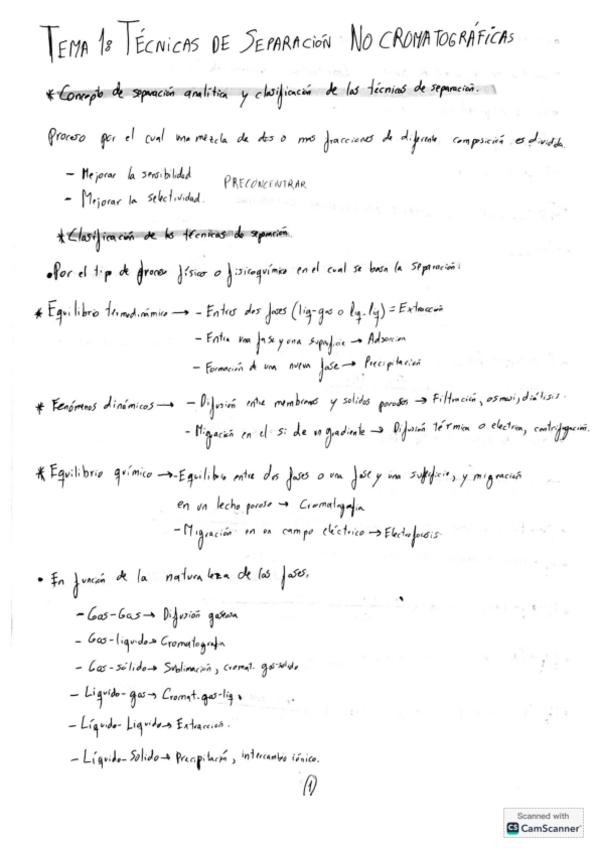 TEMA 1: TÉCNICAS DE SEPARACIÓN NO CROMATOGRÁFICAS
* Concepto de separación analítica y clasificación de las técnicas de separación.
Proceso por el cual una mezcla de dos o mas fracciones de diferente composición es dividida.
- Mejorar la sensibilidad
PRECONCENTRAR
- Mejorar la selectividad.
* Clasificación de las técnicas de separación.
• Por el tipo de proceso físico o fisicoquímico en el cual se basa la separación:
* Equilibrio termodinámico → - Entres dos fases (liq-gas o liq-liq) = Extracción
- Entre una fase y una superficie → Adsorcion
- Formación de una nueva fase → Precipitación
* Fenómenos dinámicos → - Difusión entre membranas y solidos porosos → Filtración, osmosis, diálisis.
- Migración en el si de un gradiente → Difusión térmica o electron, centrifugación.
* Equilibrio químico → - Equilibrio entre dos fases o una fase y una superficie, y migración
en un lecho poroso → Cromatografia
- Migración en un campo eléctrico → Electroforesis
• En función de la naturaleza de las fases.
- Gas-Gas → Difusión gaseosa
- Gas-liquido → Cromatografia
- Gas-sólido → Sublimación, cromat. gas-solido
- Liquido-gas → Cromat. gas-liq.
- Líquido-Liquido → Extracción.
- Líquido-Solido → Precipitación, intercambio iónico.
1
Scanned with
CS CamScanner